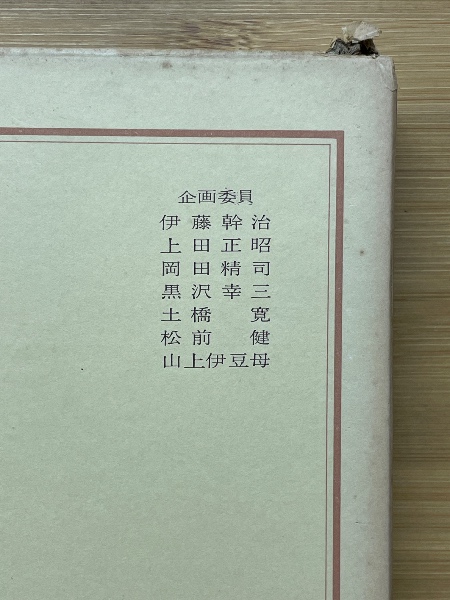 企画委員
伊藤幹治
上田正昭
岡田精司
黒沢幸三
土橋寛
松前健
山上伊豆母